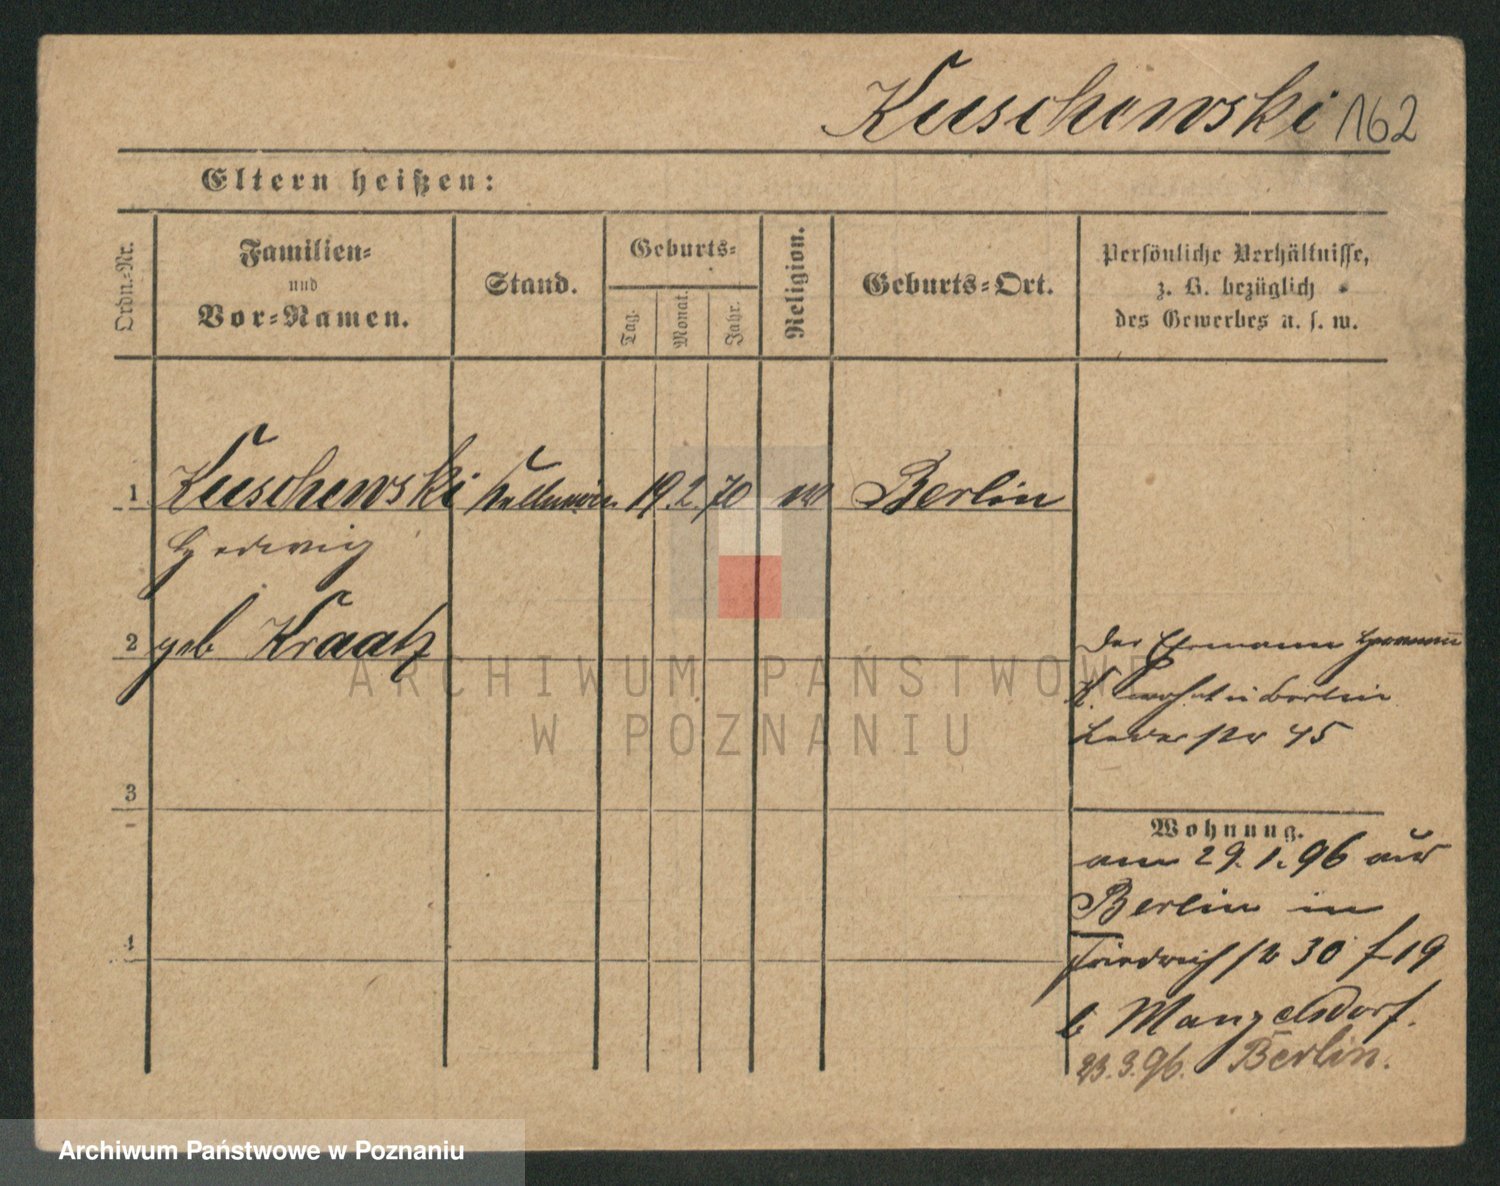 Kuschewski 162
Eltern heißen:
Ordn.-Nr.
Familien-
und
Vor-Namen.
Stand.
Geburts-
Tag.
Monat.
Jahr.
Religion.
Geburts-Ort.
Persönliche Verhältnisse,
z. B. bezüglich
des Gewerbes u. s. w.
1 Kuschewski Kellnerin 19. 2. 70 Berlin
Hedwig
2 geb Kraatz
Der Ehemann
K. wohnt in Berlin
45
3
Wohnung.
am 29. 1. 96 aus
Berlin in
4 Friedrichstr 30 f 19
b Mangelsdorf.
23. 3. 96. Berlin.
ARCHIWUM PAŃSTWOWE
W POZNANIU
Archiwum Państwowe w Poznaniu